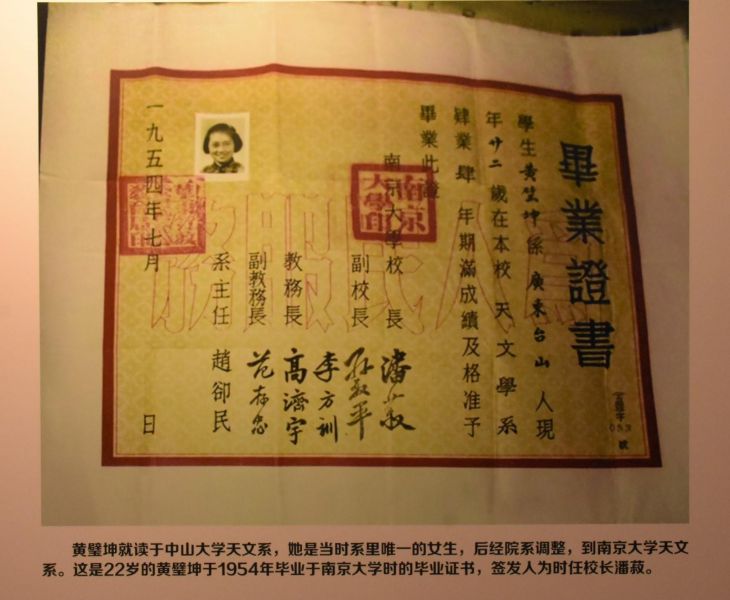 畢業證書
學生黃坒坤係廣東台山人現
年廿二歲在本校天文學系
肄業肆年期滿成績及格准予
畢業此證
南京大學校長 潘菽
副校長 孫叔平
李方訓
教務長 高濟宇
副教務長 范存忠
系主任 趙卻民
一九五四年七月 日
南京大學印
爲人民服務
字
號
黄璧坤就读于中山大学天文系，她是当时系里唯一的女生，后经院系调整，到南京大学天文
系。这是22岁的黄璧坤于1954年毕业于南京大学时的毕业证书，签发人为时任校长潘菽。